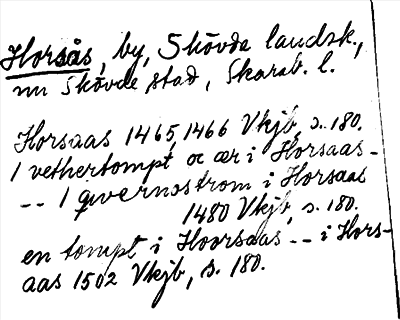 Horsås, by, Skövde landsk.,
nu Skövde stad, Skarab. l.
Horsaas 1465, 1466 Vkjb, s. 180.
1 vethertompt oc ær i Horsaas -
-- 1 qwernostrom i Horsaas
1480 Vkjb, s. 180.
en tompt i Hoorsaas -- i Hors-
aas 1502 Vkjb, s. 180.